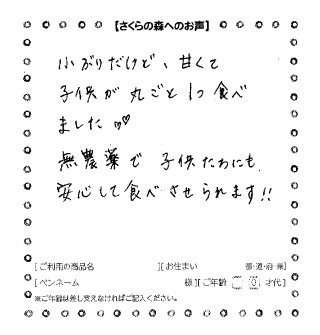 【さくらの森へのお声】
小ぶりだけど、甘くて
子供が丸ごと1つ食べ
ました♡♡
無農薬で子供たちにも
安心して食べさせられます!!
[ご利用の商品名 ][お住まい 都・道・府・県]
[ペンネーム 様][ご年齢 0 才代]
※ご年齢は差し支えなければご記入ください。